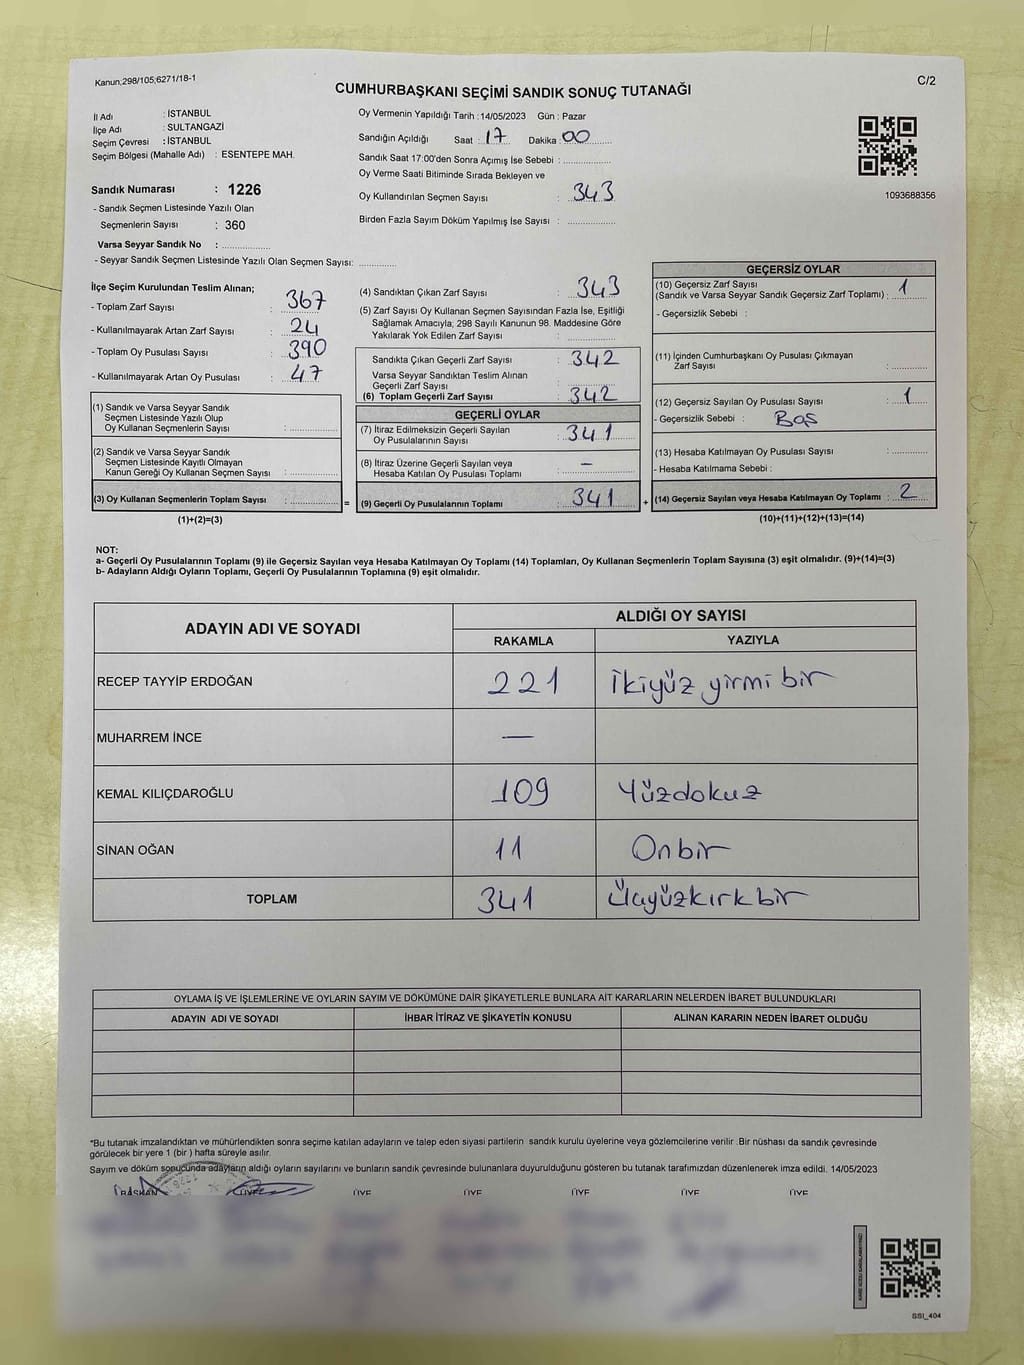 Kanun,298/105;6271/18-1
C/2
CUMHURBAŞKANI SEÇİMİ SANDIK SONUÇ TUTANAĞI
İl Adı : İSTANBUL
İlçe Adı : SULTANGAZİ
Seçim Çevresi : İSTANBUL
Seçim Bölgesi (Mahalle Adı) : ESENTEPE MAH.
Sandık Numarası : 1226
- Sandık Seçmen Listesinde Yazılı Olan
Seçmenlerin Sayısı : 360
Varsa Seyyar Sandık No :
- Seyyar Sandık Seçmen Listesinde Yazılı Olan Seçmen Sayısı:
Oy Vermenin Yapıldığı Tarih :14/05/2023 Gün : Pazar
Sandığın Açıldığı Saat : 17 Dakika : 00
Sandık Saat 17:00'den Sonra Açımış İse Sebebi :
Oy Verme Saati Bitiminde Sırada Bekleyen ve
Oy Kullandırılan Seçmen Sayısı : 343
Birden Fazla Sayım Döküm Yapılmış İse Sayısı :
1093688356
İlçe Seçim Kurulundan Teslim Alınan;
- Toplam Zarf Sayısı : 367
- Kullanılmayarak Artan Zarf Sayısı : 24
- Toplam Oy Pusulası Sayısı : 390
- Kullanılmayarak Artan Oy Pusulası : 47
(1) Sandık ve Varsa Seyyar Sandık
Seçmen Listesinde Yazılı Olup
Oy Kullanan Seçmenlerin Sayısı :
(2) Sandık ve Varsa Seyyar Sandık
Seçmen Listesinde Kayıtlı Olmayan
Kanun Gereği Oy Kullanan Seçmen Sayısı :
(3) Oy Kullanan Seçmenlerin Toplam Sayısı : =
(1)+(2)=(3)
(4) Sandıktan Çıkan Zarf Sayısı : 343
(5) Zarf Sayısı Oy Kullanan Seçmen Sayısından Fazla İse, Eşitliği
Sağlamak Amacıyla, 298 Sayılı Kanunun 98. Maddesine Göre
Yakılarak Yok Edilen Zarf Sayısı :
Sandıkta Çıkan Geçerli Zarf Sayısı : 342
Varsa Seyyar Sandıktan Teslim Alınan
Geçerli Zarf Sayısı :
(6) Toplam Geçerli Zarf Sayısı : 342
GEÇERLİ OYLAR
(7) İtiraz Edilmeksizin Geçerli Sayılan
Oy Pusulalarının Sayısı : 341
(8) İtiraz Üzerine Geçerli Sayılan veya
Hesaba Katılan Oy Pusulası Toplamı : —
(9) Geçerli Oy Pusulalarının Toplamı : 341 +
GEÇERSİZ OYLAR
(10) Geçersiz Zarf Sayısı
(Sandık ve Varsa Seyyar Sandık Geçersiz Zarf Toplamı) : 1
- Geçersizlik Sebebi :
(11) İçinden Cumhurbaşkanı Oy Pusulası Çıkmayan
Zarf Sayısı :
(12) Geçersiz Sayılan Oy Pusulası Sayısı : 1
- Geçersizlik Sebebi : Boş
(13) Hesaba Katılmayan Oy Pusulası Sayısı :
- Hesaba Katılmama Sebebi :
(14) Geçersiz Sayılan veya Hesaba Katılmayan Oy Toplamı : 2
(10)+(11)+(12)+(13)=(14)
NOT:
a- Geçerli Oy Pusulalarının Toplamı (9) ile Geçersiz Sayılan veya Hesaba Katılmayan Oy Toplamı (14) Toplamları, Oy Kullanan Seçmenlerin Toplam Sayısına (3) eşit olmalıdır. (9)+(14)=(3)
b- Adayların Aldığı Oyların Toplamı, Geçerli Oy Pusulalarının Toplamına (9) eşit olmalıdır.
ADAYIN ADI VE SOYADI ALDIĞI OY SAYISI
RAKAMLA YAZIYLA
RECEP TAYYİP ERDOĞAN 221 İkiyüz yirmi bir
MUHARREM İNCE —
KEMAL KILIÇDAROĞLU 109 Yüzdokuz
SİNAN OĞAN 11 Onbir
TOPLAM 341 Üçyüzkırkbir
OYLAMA İŞ VE İŞLEMLERİNE VE OYLARIN SAYIM VE DÖKÜMÜNE DAİR ŞİKAYETLERLE BUNLARA AİT KARARLARIN NELERDEN İBARET BULUNDUKLARI
ADAYIN ADI VE SOYADI İHBAR İTİRAZ VE ŞİKAYETİN KONUSU ALINAN KARARIN NEDEN İBARET OLDUĞU
*Bu tutanak imzalandıktan ve mühürlendikten sonra seçime katılan adayların ve talep eden siyasi partilerin sandık kurulu üyelerine veya gözlemcilerine verilir .Bir nüshası da sandık çevresinde
görülecek bir yere 1 (bir ) hafta süreyle asılır.
Sayım ve döküm sonucunda adayların aldığı oyların sayılarını ve bunların sandık çevresinde bulunanlara duyurulduğunu gösteren bu tutanak tarafımızdan düzenlenerek imza edildi. 14/05/2023
BAŞKAN ÜYE ÜYE ÜYE ÜYE ÜYE ÜYE
SSI_404